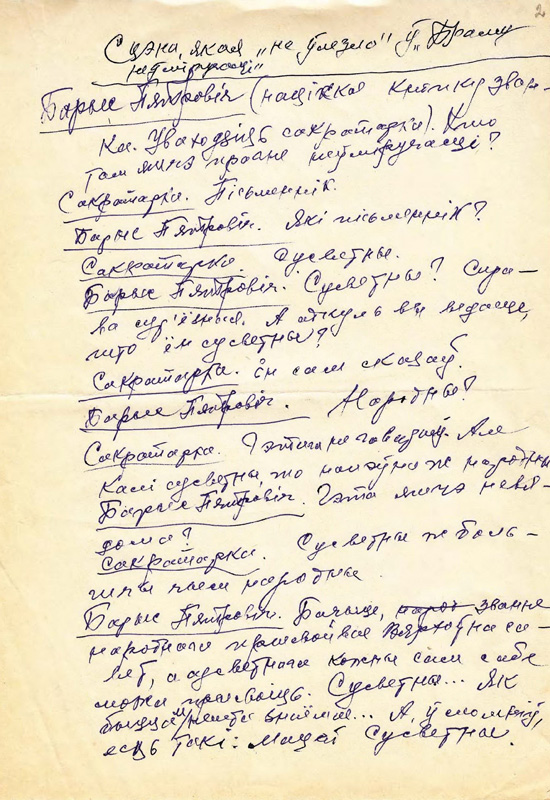 2
Сцэна, якая „не ўлезла" ў „Браму
неўміручасці"
Барыс Пятровіч (націскае кнопку зван-
ка. Уваходзіць сакратарка). Хто
там яшчэ просіць неўміручасці?
Сакратарка. Пісьменнік.
Барыс Пятровіч. Які пісьменнік?
Сакратарка. Сусветны.
Барыс Пятровіч. Сусветны? Спра-
ва сур'ёзная. А адкуль вы ведаеце,
што ён сусветны?
Сакратарка. Ён сам сказаў.
Барыс Пятровіч. Народны?
Сакратарка. Гэтага не гаварыў. Але
калі сусветны, то напэўна ж народны.
Барыс Пятровіч. Гэта яшчэ невя-
дома?
Сакратарка. Сусветны ж боль-
шы чым народны.
Барыс Пятровіч. Бачыце, званне
народнага прысвойвае Вярхоўны са-
вет, а сусветнага кожны сам сабе
можа прысвоіць. Сусветны... Як
быццам нешта знаёмае... А, ўспомніў,
ёсць такі: Мацей Сусветны.